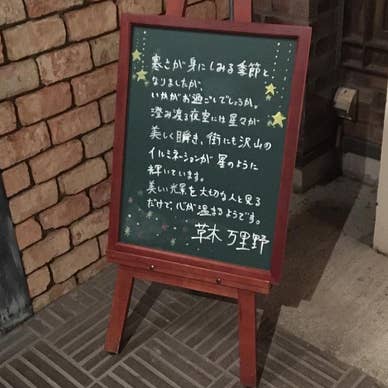 寒さが身にしみる季節と
なりましたが、
いかがお過ごしでしょうか。
澄み渡る夜空には星々が
美しく瞬き、街にも沢山の
イルミネーションが星のように
輝いています。
美しい光景を大切な人と見る
だけで、心が温まるようです。
草木万里野